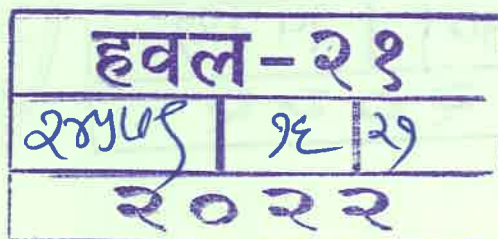 हवल-२१
२४५७९ | १६ | २१
२०२२